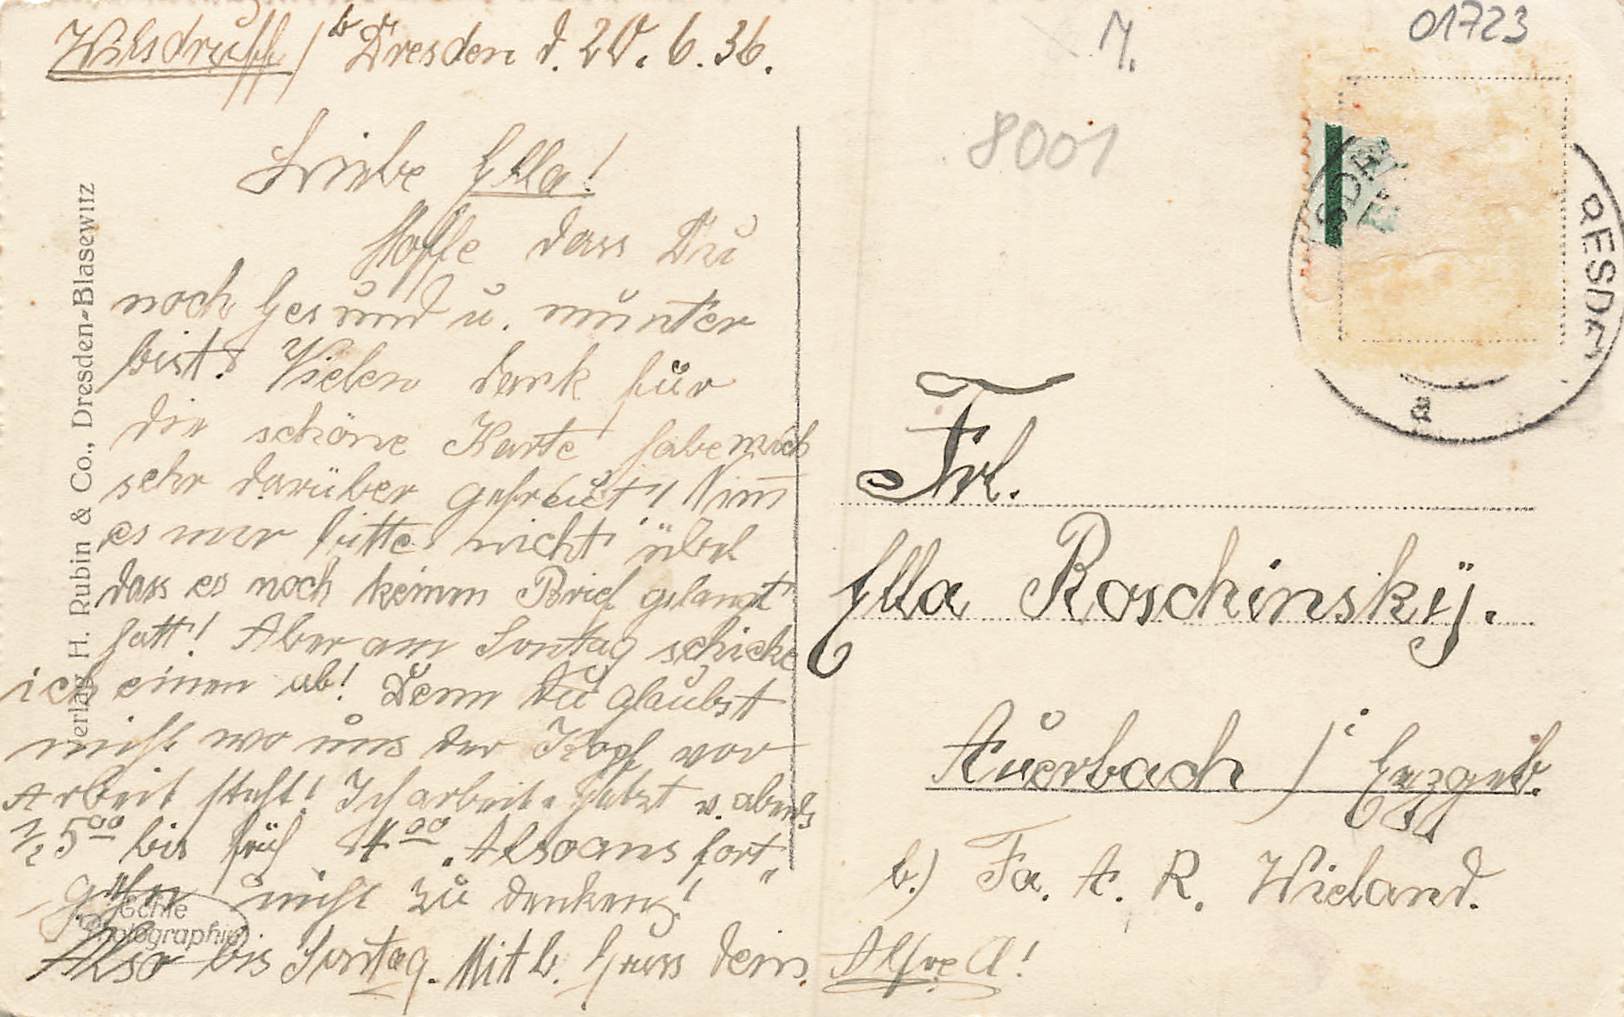 Wilsdruff / b Dresden d. 20. 6. 36.
Liebe Ella!
Hoffe dass Du
noch Gesund u. munter
bist. Vielen dank für
die schöne Karte habe mich
sehr darüber gefreut! Nim̅
es mir bitte nicht übel
dass es noch keinen Brief gelangt
hatt! Aber am Sontag schicke
ich einen ab! Denn Du glaubst
nicht wo uns der Kopf vor
Arbeit steht! Ich arbeite v. abends
½ 5⁰⁰ bis früh 4⁰⁰. Also ans fort"
gehn nicht zu denken!
Also bis Sontag. Mit b. Gruss dein Alfred!
Verlag H. Rubin & Co., Dresden-Blasewitz
Echte
Photographie
M.
01723
8001
RESDEN
a
Frl.
Ella Roschinský.
Auerbach / i Erzgeb.
b.) Fa. A. R. Wieland.